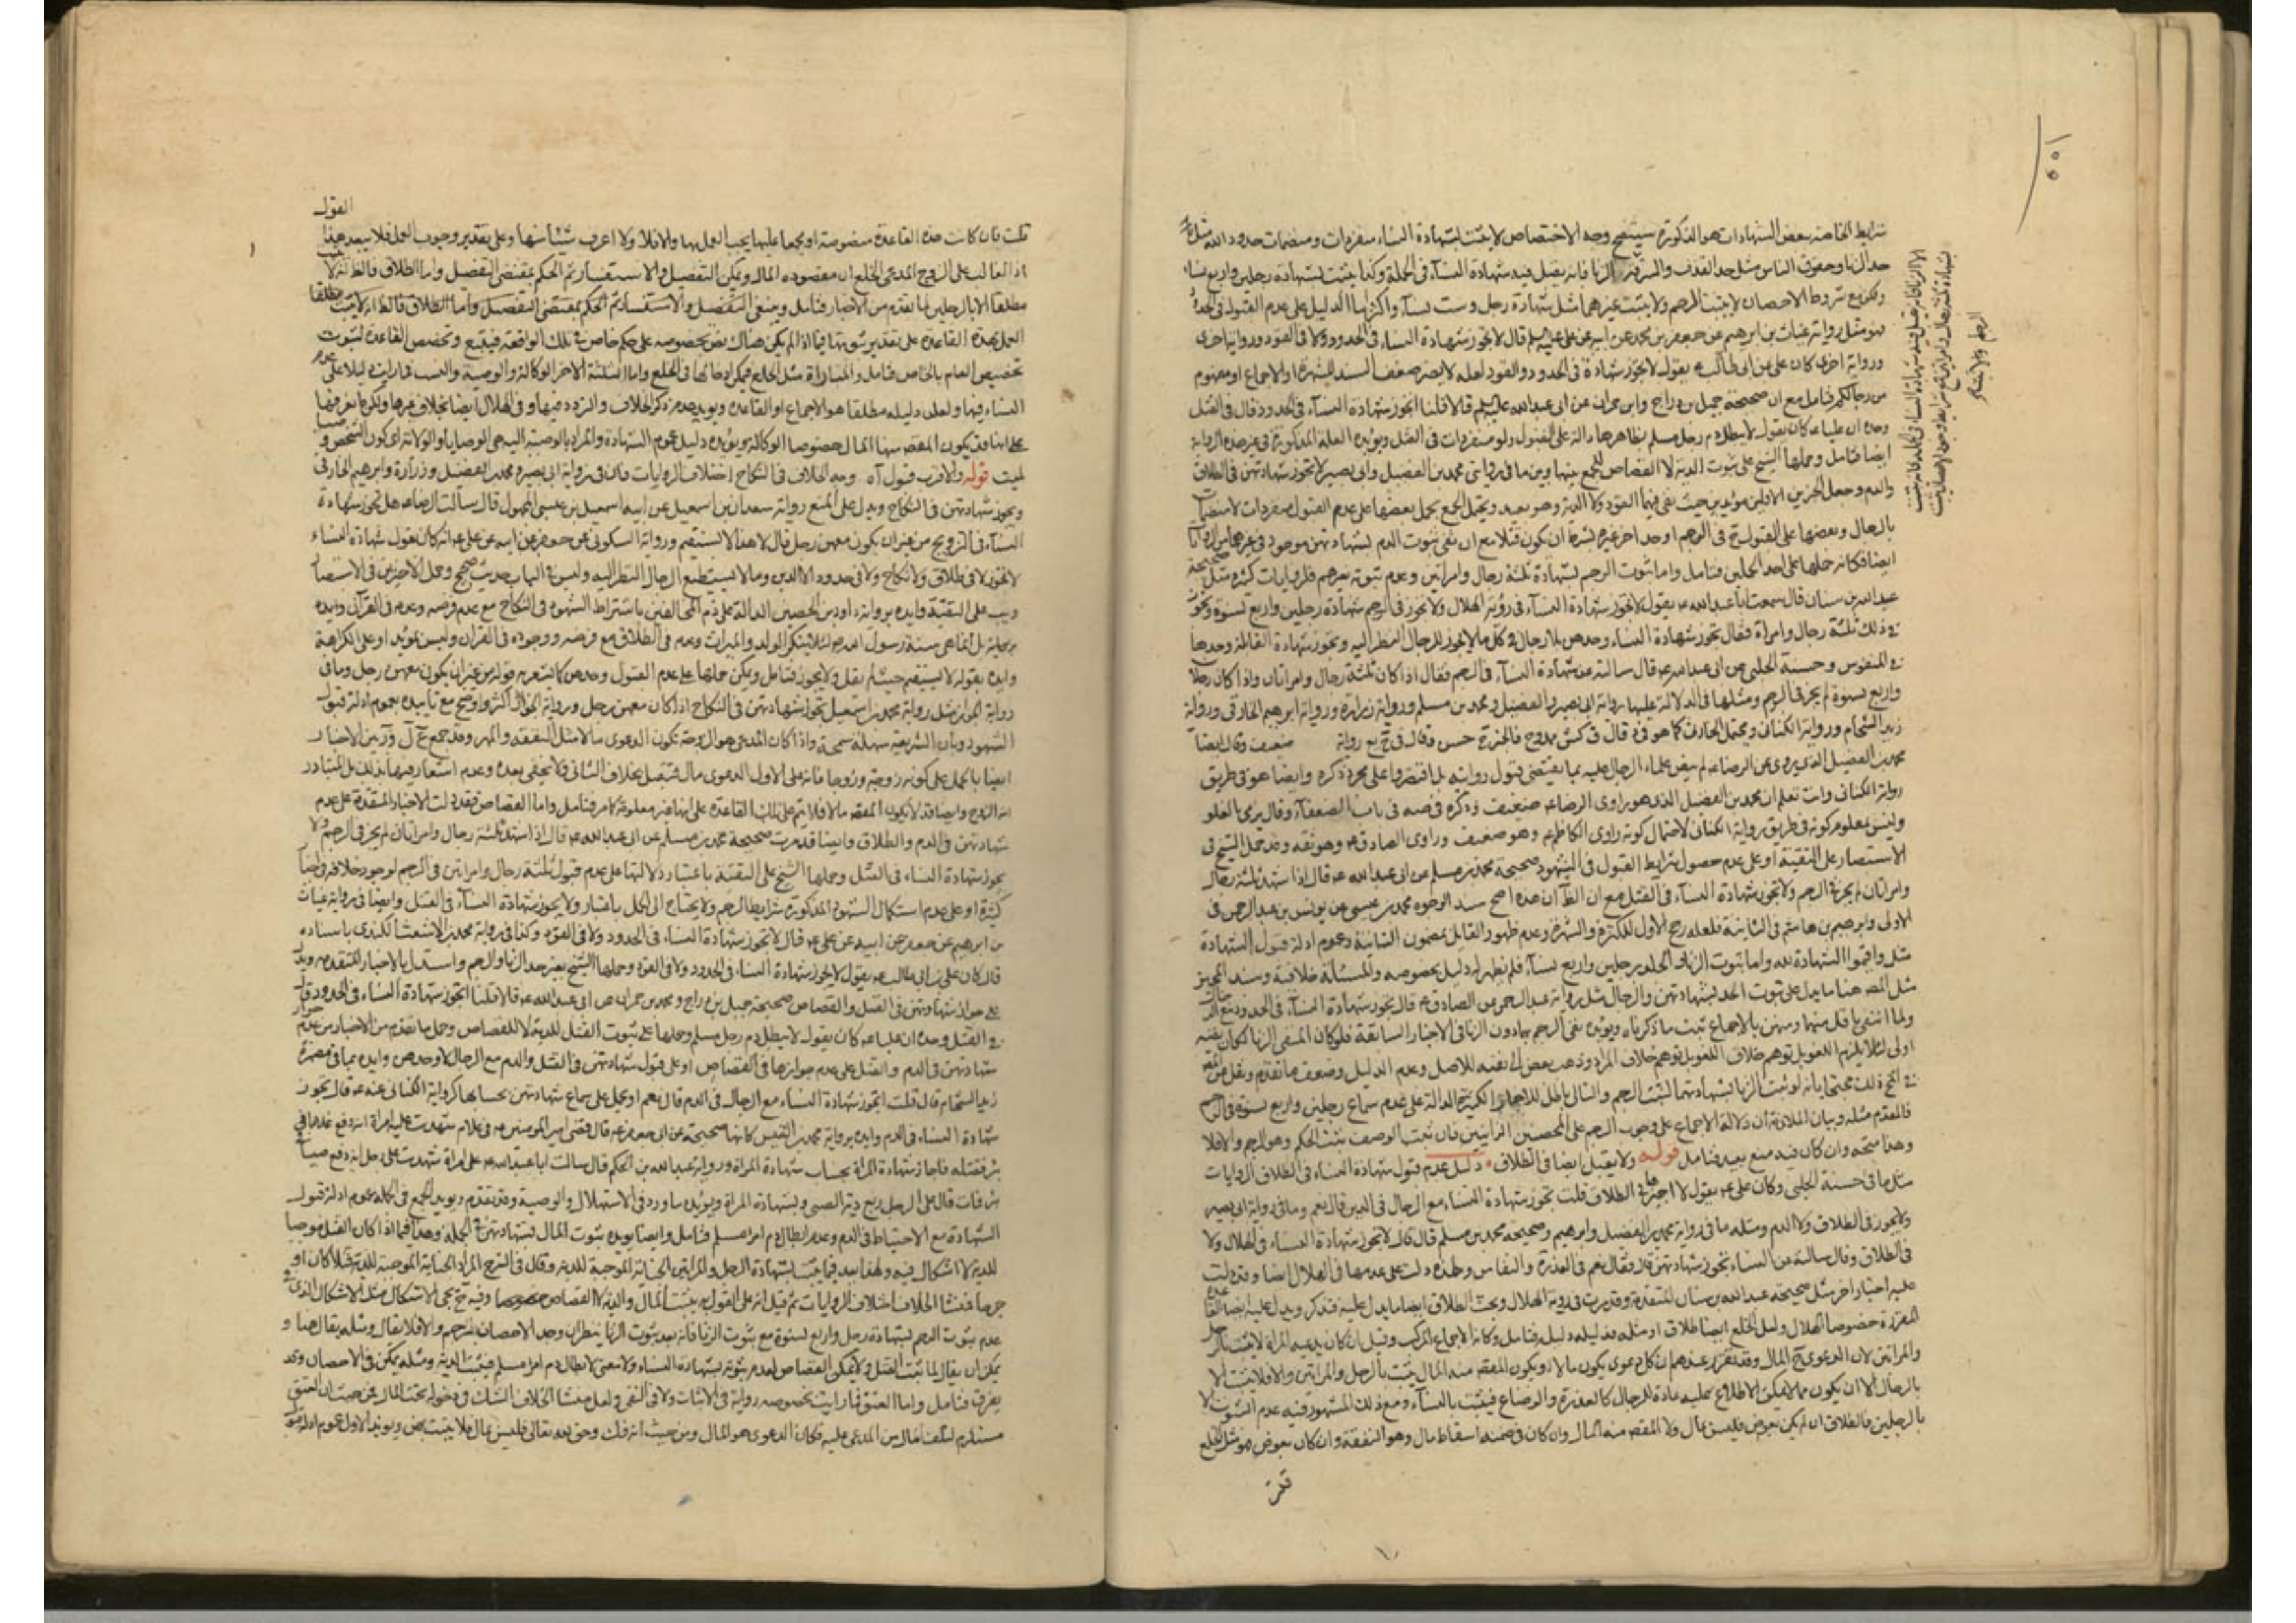 شرايط الخاصة ببعض الشهادات هو الذكورة سيتضح وجه الاختصاص لا يثبت بشهادة النساء منفردات ومنضمات حدود الله مثل
حد الزنا وحقوق الناس مثل حد القذف والسرقة الزنا فانه يقبل فيه شهادة النساء في الجملة وكذا يثبت بشهادة رجلين واربع نساء
ولكن مع شروط الاحصان لا يثبت الرجم ولا يثبت غيرهما مثل شهادة رجل وست نساء واكثر اما الدليل على عدم القبول في الحدود
فهو مثل رواية غياث بن ابرهيم عن جعفر بن محمد عن ابيه عن علي عليهم قال لا تجوز شهادة النساء في الحدود ولا في القود ورواية اخرى
ورواية اخرى كان علي بن ابي طالب ع يقول لا تجوز شهادة في الحدود والقود لعله لا يضر ضعف السند للشهرة او الاجماع او مفهوم
من رجالكم فتامل مع ان صحيحة جميل بن دراج وابن حمران عن ابي عبدالله عليه السلم قالا قلنا اتجوز شهادة النساء في الحدود قال في القتل
وحده ان عليا ع كان يقول لا يبطل دم رجل مسلم بظاهرها دالة على القبول ولو منفردات في القتل ويؤيده العلة المذكورة في هذه الرواية
ايضا فتامل وحملها الشيخ على ثبوت الدية لا القصاص للجمع بينها وبين ما في روايتي محمد بن الفضيل وابي بصير لا تجوز شهادتهن في الطلاق
والدم وجعل الخبرين الاولين مؤيدين حيث نفي فيهما القود ولا الدية وهو بعيد ويحتمل الجمع بحمل بعضها على عدم القبول منفردات لا منضمات
بالرجال وبعضها على القبول في الرجم او حد اخر غيره بشرط ان يكون قتلا مع ان نفي ثبوت الدم بشهادتهن موجود في غيرهما من الروايات
ايضا فكانه حملها على احد الحملين فتامل واما ثبوت الرجم بشهادة ثلثة رجال وامراتين وعدم ثبوته بغيرهم فلروايات كثيرة مثل صحيحة
عبدالله بن سنان قال سمعت ابا عبدالله ع يقول لا تجوز شهادة النساء في رؤية الهلال ولا تجوز في الرجم شهادة رجلين واربع نسوة وتجوز
في ذلك ثلثة رجال وامراة فقال تجوز شهادة النساء وحدهن بلا رجال في كل ما لا يجوز للرجال النظر اليه وتجوز شهادة القابلة وحدها
في المنفوس وحسنة الحلبي عن ابي عبدالله ع قال سالته عن شهادة النساء في الرجم فقال اذا كان ثلثة رجال وامراتان واذا كان رجلان
واربع نسوة لم يجز في الرجم ومثلها في الدلالة عليها رواية ابي بصير والفضيل ومحمد بن مسلم ورواية زرارة ورواية ابرهيم الحارقي ورواية
زيد الشحام ورواية الكناني ويحتمل الحارث كما هو في قال في كش ممدوح فالخبر حسن وقال في يع رواية ضعيف وقال ايضا
محمد بن الفضيل الذي يروي عن الرضا ع لم ينص علماء الرجال عليه بما يقتضي قبول روايته بل اقتصروا على مجرد ذكره وايضا هو في طريق
رواية الكناني وانت تعلم ان محمد بن الفضيل الذي هو راوي الرضا ع ضعيف ذكره في صه في باب الضعفاء وقال يرمى بالغلو
وليس بمعلوم كونه في طريق رواية الكناني لاحتمال كونه راوي الكاظم ع وهو ضعيف وراوي الصادق ع وهو ثقة وقد حمل الشيخ في
الاستبصار على التقية او على عدم حصول شرايط القبول في الشهود صحيحة محمد بن مسلم عن ابي عبدالله ع قال اذا شهد ثلثة رجال
وامراتان لم يجز في الرجم ولا تجوز شهادة النساء في القتل مع ان الظ ان هذه اصح سند الوجود محمد بن عيسى عن يونس بن عبدالرحمن في
الاولى وابرهيم بن هاشم في الثانية فلعله رجح الاول للكثرة والشهرة وعدم ظهور القائل بمضمون الثانية وعموم ادلة قبول الشهادة
مثل واقيموا الشهادة لله واما ثبوت الزنا والجلد برجلين واربع نساء فلم نظهر له دليل بخصوصه والمسئلة خلافية وسند المجيز
مثل المص هنا ما يدل على ثبوت الحد بشهادتهن والرجال مثل رواية عبدالرحمن عن الصادق ع قال تجوز شهادة النساء في الحدود مع الرجال
ولما انتفى باقل منهما ومنهن بالاجماع ثبت ما ذكرناه ويؤيده نفي الرجم بهما دون الزنا في الاخبار السابقة فلو كان المنفي الزنا لكان نفيه
اولى لئلا يلزم اللغو بل توهم خلاف المراد وذهب بعض الى نفيه للاصل وعدم الدليل وضعف ما تقدم ونقل عن
في ذلك محتجا بانه لو ثبت الزنا بشهادتهما لثبت الرجم والتالي باطل للاخبار الكثيرة الدالة على عدم سماع رجلين واربع نسوة في الرجم
فالمقدم مثله وبيان الملازمة ان دلالة الاجماع على وجوب الرجم على المحصنين الزانيين فان ثبت الوصف يثبت الحكم وهو الرجم والا فلا
وهذا متجه وان كان فيه منع بعيد فتامل قوله ولا يقبل ايضا في الطلاق دليل عدم قبول شهادة النساء في الطلاق الروايات
مثل ما في حسنة الحلبي وكان علي ع يقول لا اجيزها في الطلاق قلت تجوز شهادة النساء مع الرجال في الدين قال نعم وما في رواية ابي بصير
ولا يجوز في الطلاق ولا الدم ومثله ما في رواية محمد بن الفضيل وابرهيم وصحيحة محمد بن مسلم قال قال لا تجوز شهادة النساء في الهلال ولا
في الطلاق وقال سالته عن النساء تجوز شهادتهن قال فقال نعم في العذرة والنفاس وهذه دلت على عدمها في الهلال ايضا وقد دلت
عليه اخبار اخر مثل صحيحة عبدالله بن سنان المتقدمة وقد مرت في رؤية الهلال وبحث الطلاق ايضا ما يدل عليه فتذكر ويدل عليه ايضا القاعدة
المقررة خصوصا الهلال ولعل الخلع ايضا طلاق او مثله فدليله دليله فتامل وكانه الاجماع المركب وقيل ان كان يدعيه المراة لا يثبت بالرجل
والمراتين لان الدعوى ح المال وقد تقرر عندهم ان كل دعوى يكون مالا او يكون المقص منه المال يثبت بالرجل والمراتين والا فلا يثبت الا
بالرجال الا ان يكون مما لا يمكن الاطلاع عليه عادة للرجال كالعذرة والرضاع فيثبت بالنساء ومع ذلك المشهور فيه عدم الثبوت الا
بالرجلين فالطلاق ان لم يكن بعوض فليس بمال ولا المقص منه المال وان كان في ضمنه اسقاط مال وهو النفقة وان كان بعوض هو مثل الخلع
قلت
الا الزنا فانه يقبل فيه شهادة النساء في الجملة فانه يثبت
بشهادة ثلثة رجال وامراتين مع شرايط وجود الاحصان يثبت
الرجم ولا يثبت
القول
قلت فان كانت هذه القاعدة منصوصة او مجمعا عليها يجب العمل بها والا فلا ولا اعرف شيئا منها وعلى تقدير وجوب العمل فلا يبعد هنا
اذ الغالب على الزوج المدعي الخلع ان مقصوده المال ويمكن التفصيل والاستفسار ثم الحكم بمقتضى التفصيل واما الطلاق فالظ انه لا
مطلقا الا بالرجلين لما تقدم من الاخبار فتامل وينبغي التفصيل والاستفسار ثم الحكم بمقتضى التفصيل واما الطلاق فالظ انه لا يثبت مطلقا
العمل بهذه القاعدة على تقدير ثبوتها فيما اذا لم يكن هناك نص بخصوصه على حكم خاص في تلك الواقعة فيتبع وتخصص القاعدة لثبوت
تخصيص العام بالخاص فتامل والمباراة مثل الخلع فيمكن ادخالها في الخلع واما الثلثة الاخر الوكالة والوصية والنسب فما رايت دليلا على عدم
النساء فيها ولعل دليله مطلقا هو الاجماع او القاعدة ويؤيده عدم ذكر الخلاف والتردد فيها وفي الهلال ايضا بخلاف غيرها ولكن ما نعرفها
على انها قد يكون المقص منها المال خصوصا الوكالة ويؤيده دليل عموم الشهادة والمراد بالوصية اليه هي الوصايا والولاية اي كون الشخص وصيا
لميت قوله والاقرب قبول آه وجه الخلاف في النكاح اختلاف الروايات فان في رواية ابي بصير ومحمد بن الفضيل وزرارة وابرهيم الحارقي
وتجوز شهادتهن في النكاح ويدل على المنع رواية سعدان بن اسمعيل عن ابيه اسمعيل بن عيسى المجهول قال سالت الرضا ع هل تجوز شهادة
النساء في التزويج من غير ان يكون معهن رجل قال لا هذا لا يستقيم ورواية السكوني عن جعفر عن ابيه عن علي ع انه كان يقول شهادة النساء
لا تجوز في طلاق ولا نكاح ولا في حدود الا الديون وما لا يستطيع الرجال النظر اليه وليس في الباب حديث صحيح وحمل الاخيرين في الاستبصار
ويب على التقية وايده برواية داود بن الحصين الدالة على ذم المخالفين باشتراط الشهود في النكاح مع عدم فرضه وعدمه في القرآن وايده
بل انما هي سنة رسول الله ص لئلا ينكر الولد والميراث وعدم في الطلاق مع فرضه ووجوده في القران وليس بمؤيد او على الكراهة
وايده بقوله لا يستقيم حيث لم يقل ولا يجوز فتامل ويمكن حملها على عدم القبول وحدهن كما يشعر به قوله من غير ان يكون معهن رجل وما في
رواية الجواز مثل رواية محمد بن اسمعيل تجوز شهادتهن في النكاح اذا كان معهن رجل ورواية الجواز اكثر واوضح مع تاييده بعموم ادلة قبول
الشهود وبان الشريعة سهلة سمحة واذا كان المدعي هو الزوجة تكون الدعوى مالا مثل النفقة والمهر وقد جمع بين الاخبار
ايضا بالحمل على كونه زوجة وزوجا فانه على الاول الدعوى مال فتقبل بخلاف الثاني ولا يخفى بعده وعدم اشعار فيها بذلك بل المتبادر
انه الزوج وايضا قد لا يكون المقص مالا فلا يتم على تلك القاعدة على انها غير معلومة كما مر فتامل واما القصاص فقد دلت الاخبار المتقدمة على عدم
شهادتهن في الدم والطلاق وايضا قد مرت صحيحة محمد بن مسلم عن ابي عبدالله ع قال اذا شهد ثلثة رجال وامراتان لم يجز في الرجم ولا
يجوز شهادة النساء في القتل وحملها الشيخ على التقية باعتبار دلالتها على عدم قبول ثلثة رجال وامراتين في الرجم لوجود خلافه في اخبار
كثيرة او على عدم استكمال الشهود المذكورة شرايط الرجم ولا يحتاج الى الحمل باعتبار ولا يجوز شهادة النساء في القتل وايضا في رواية غياث
بن ابرهيم عن جعفر عن ابيه عن علي ع قال لا تجوز شهادة النساء في الحدود ولا في القود وكذا في رواية محمد بن الاشعث الكندي باسناده
قال كان علي بن ابي طالب ع يقول لا يجوز شهادة النساء في الحدود ولا في القود وحملها الشيخ بغير حد الزنا والرجم واستدل بالاخبار المتقدمة ويدل
على جواز شهادتهن في القتل والقصاص صحيحة جميل بن دراج ومحمد بن حمران عن ابي عبدالله ع قالا قلنا اتجوز شهادة النساء في الحدود قال
في القتل وحده ان عليا ع كان يقول لا يبطل دم رجل مسلم وحملها على ثبوت القتل للدية لا للقصاص وحمل ما تقدم من الاخبار من عدم جواز
شهادتهن في الدم والقتل على عدم جوازها في القصاص او على قبول شهادتهن في القتل والدم مع الرجال لا وحدهن وايده بما في مضمرة
زيد الشحام قال قلت اتجوز شهادة النساء مع الرجال في الدم قال نعم او يحمل على سماع شهادتهن بحسابها كرواية الكناني عنه ع قال يجوز
شهادة النساء في الدم وايده برواية محمد بن القيس كانها صحيحة عن ابي جعفر ع قال قضى امير المومنين ع في غلام شهدت عليه امراة انه دفع غلاما في
بئر فقتله فاجاز شهادة المراة بحساب شهادة المراة ورواية عبدالله بن الحكم قال سالت ابا عبدالله ع عن امراة شهدت على رجل انه دفع صبيا في
بئر فمات قال على الرجل ربع دية الصبي بشهادة المراة ويؤيده ما ورد في الاستهلال والوصية وقد تقدم ويؤيد الجمع في الجملة عموم ادلة قبول
الشهادة مع الاحتياط في الدم وعدم ابطال دم امرا مسلم فتامل وايضا يؤيده ثبوت المال بشهادتهن في الجملة وهذا فيما اذا كان القتل موجبا
للدية لا اشكال فيه ولهذا فيما يثبت بشهادة الرجل والمراتين الجناية الموجبة للدية وقال في الشرح المراد الجناية الموجبة للدية قتلا كان او
جرحا فمنشا الخلاف اختلاف الروايات ثم قيل انه على القول به يثبت المال والدية لا القصاص وفيه ح يجي الاشكال مثل الاشكال الذي في
عدم ثبوت الرجم بشهادة رجل واربع نسوة مع ثبوت الزنا فانه بعد ثبوت الزنا ينظر ان وجد الاحصان يرجم والا فلا يقال ومثله يقال هنا و
يمكن ان يقال لما يثبت القتل ولا يمكن القصاص لعدم ثبوته بشهادة النساء ولا معنى لابطال دم امرا مسلم فيثبت الدية ومثله يمكن في الاحصان وقد
يفرق فتامل واما العتق فما رايت بخصوصه رواية في الاثبات ولا في النفي ولعل منشا الخلاف الشك في دخوله تحت المال فمن حيث ان العتق
مستلزم لتلف مال من المدعى عليه فكان الدعوى هو المال ومن حيث انه فك وحق لله تعالى فليس بمال فلا يثبت بهن ويؤيد الاول عموم ادلة